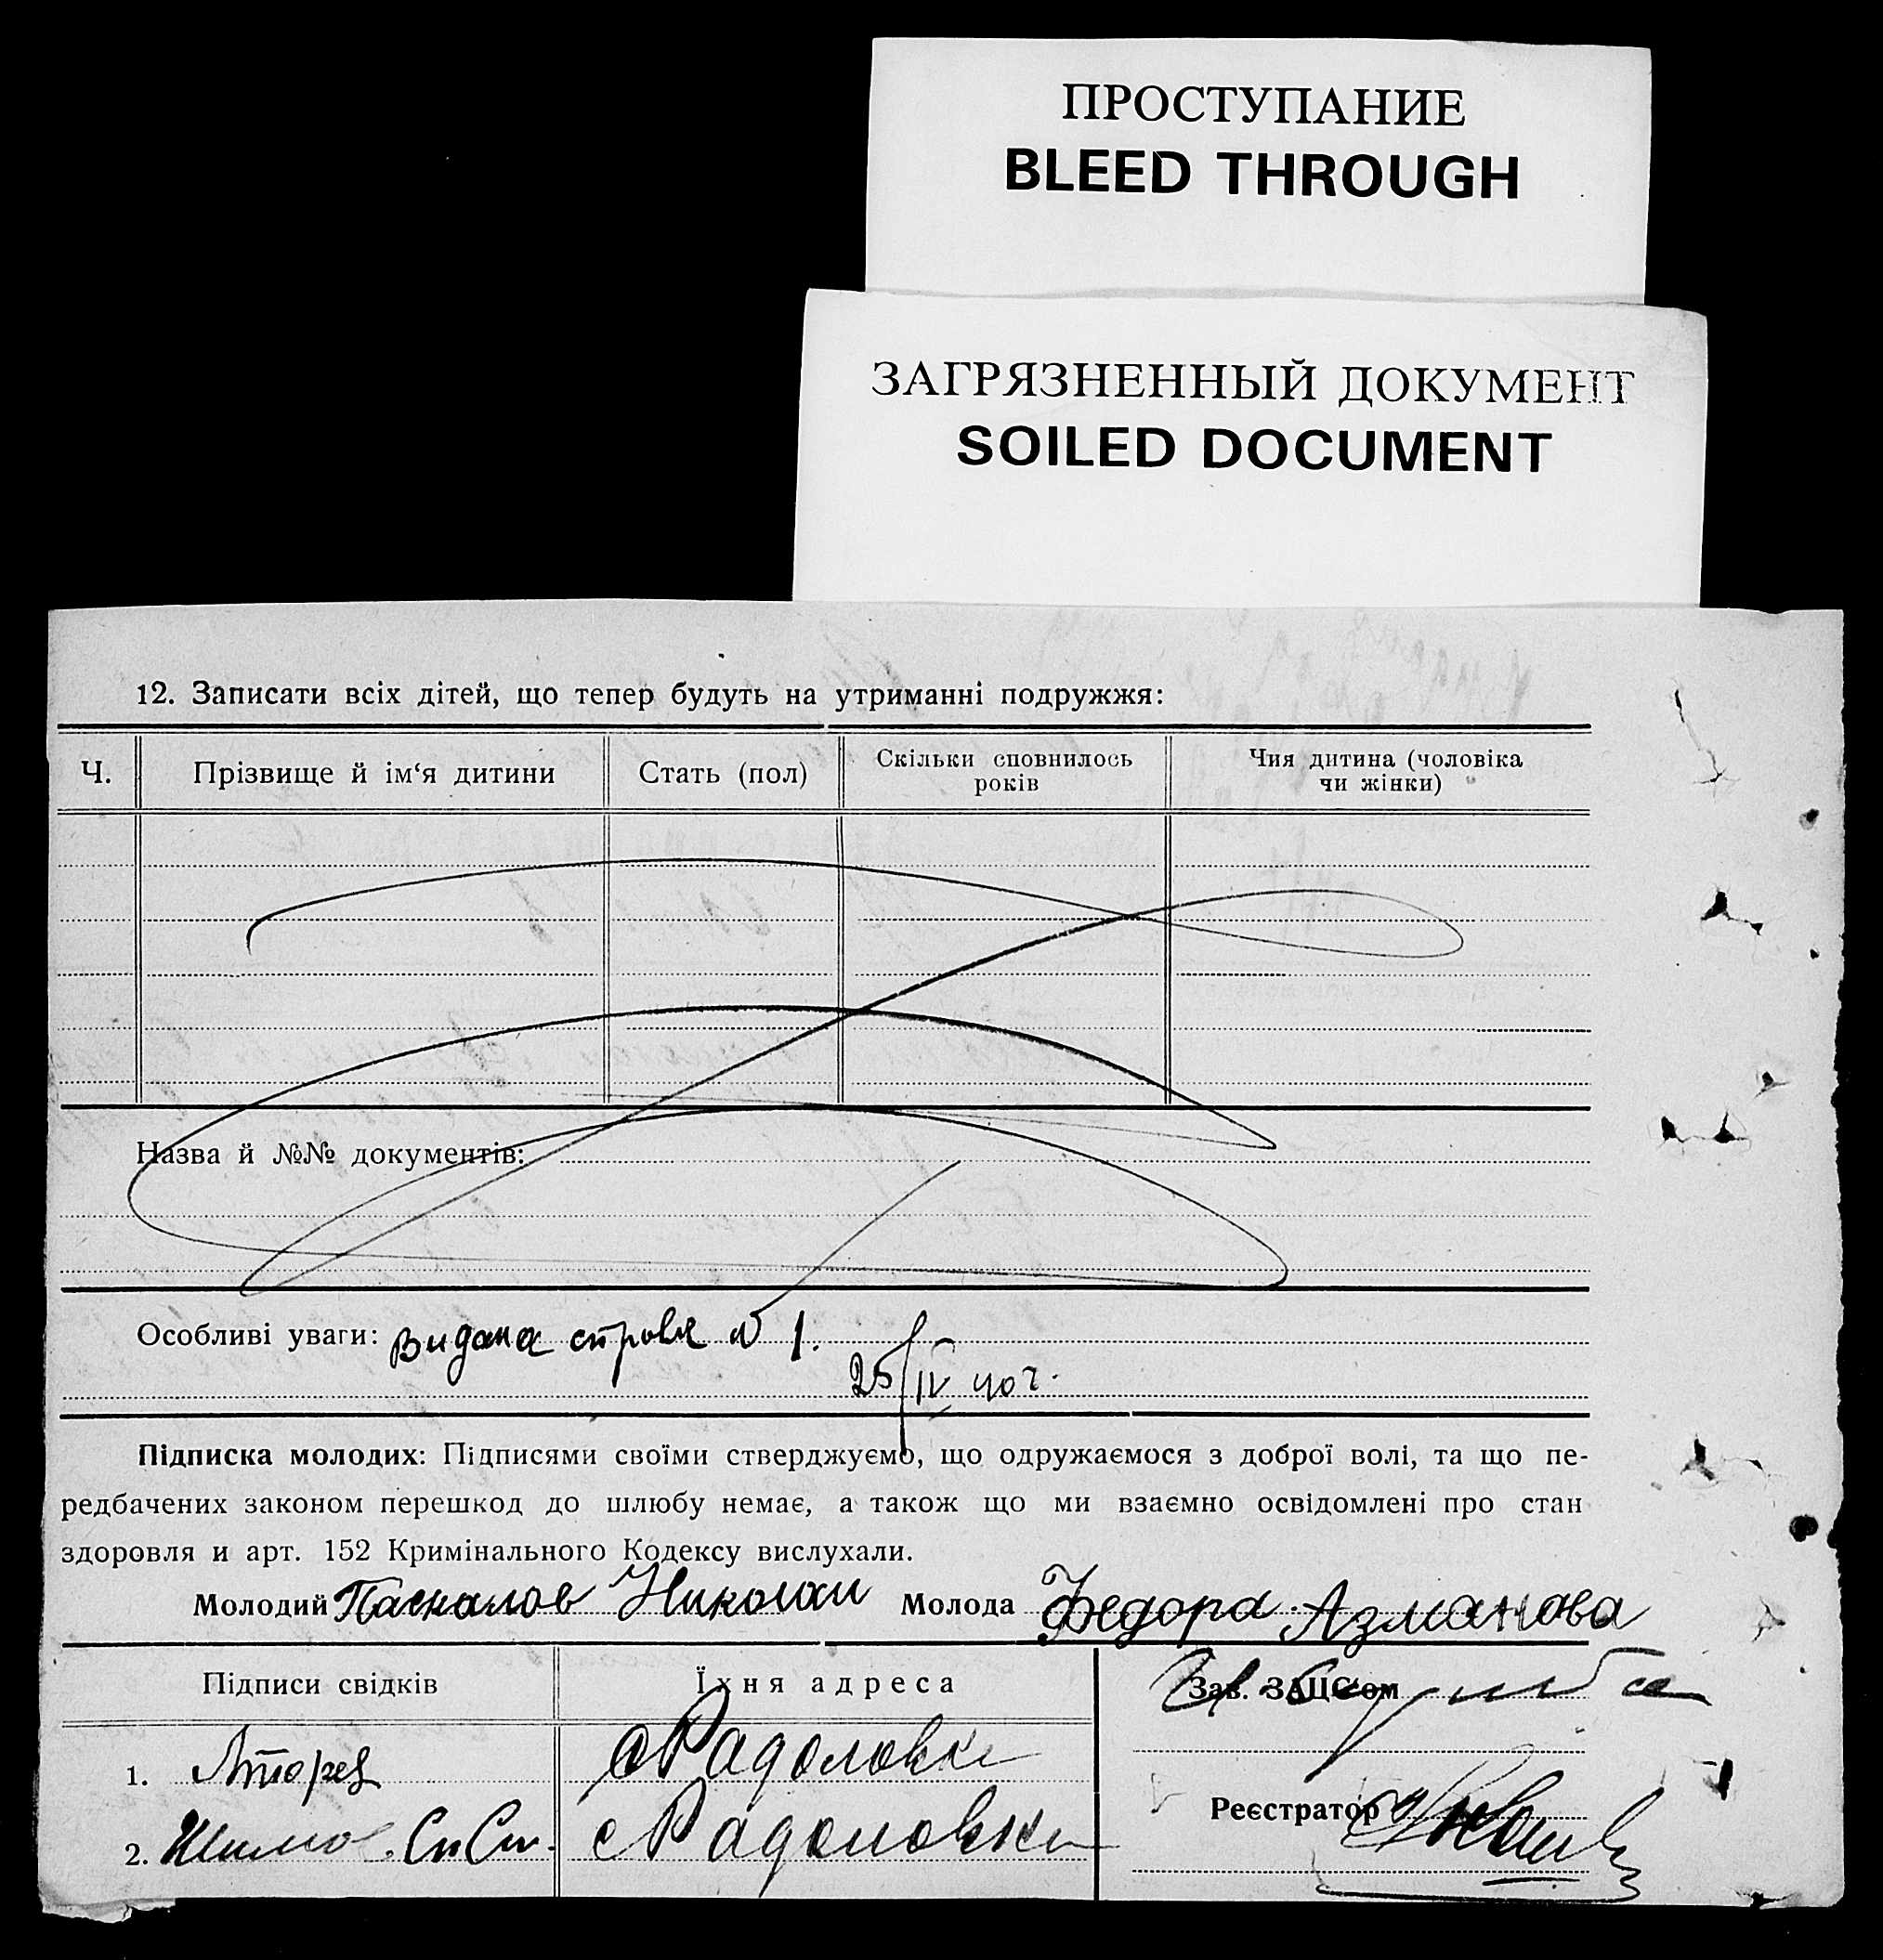 ПРОСТУПАНИЕ
BLEED THROUGH
ЗАГРЯЗНЕННЫЙ ДОКУМЕНТ
SOILED DOCUMENT
12. Записати всіх дітей, що тепер будуть на утриманні подружжя:
Ч. Прізвище й ім‘я дитини Стать (пол) Скільки сповнилось років Чия дитина (чоловіка чи жінки)
Назва й №№ документів:
Особливі уваги: Видана справка № 1.
25/IV 40 г.
Підписка молодих: Підписями своїми стверджуємо, що одружаємося з доброї волі, та що пе-
редбачених законом перешкод до шлюбу немає, а також що ми взаємно освідомлені про стан
здоровля и арт. 152 Кримінального Кодексу вислухали.
Молодий Паскалов Николаи Молода Федора Азманова
Підписи свідків Їхня адреса Зав. ЗАЦС'ом
1. с Радоловка
Реєстратор
2. с Радоловка